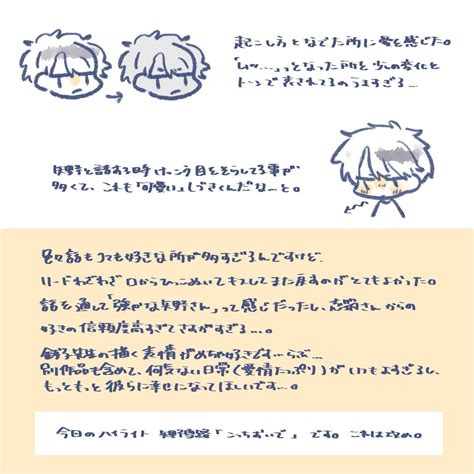 起こし方となでた所に愛を感じた。
「ムッ…」っとなった所を光の変化と
トーンで表されてるのうますぎる…
矢野と話する時けっこう目をそらしてる事が
多くて、これも「可愛い」しづきくんだなーと。
色々話もコマも好きな所が多すぎるんですけど、
リードわざわざ口からひっこぬいてキスしてまた戻すのがとてもよかった。
話を通して「強かな矢野さん」って感じだったし、志築さんからの
好きの信頼度高すぎてさすがすぎる…。
先生の描く表情がめちゃ好きです…らぶ…
別作品も含めて、何気ない日常(愛情たっぷり)がいつもよすぎるし、
もっともっと彼らに幸せになってほしいです…。
今日のハイライト 「こっちおいで」 です。これは攻め。